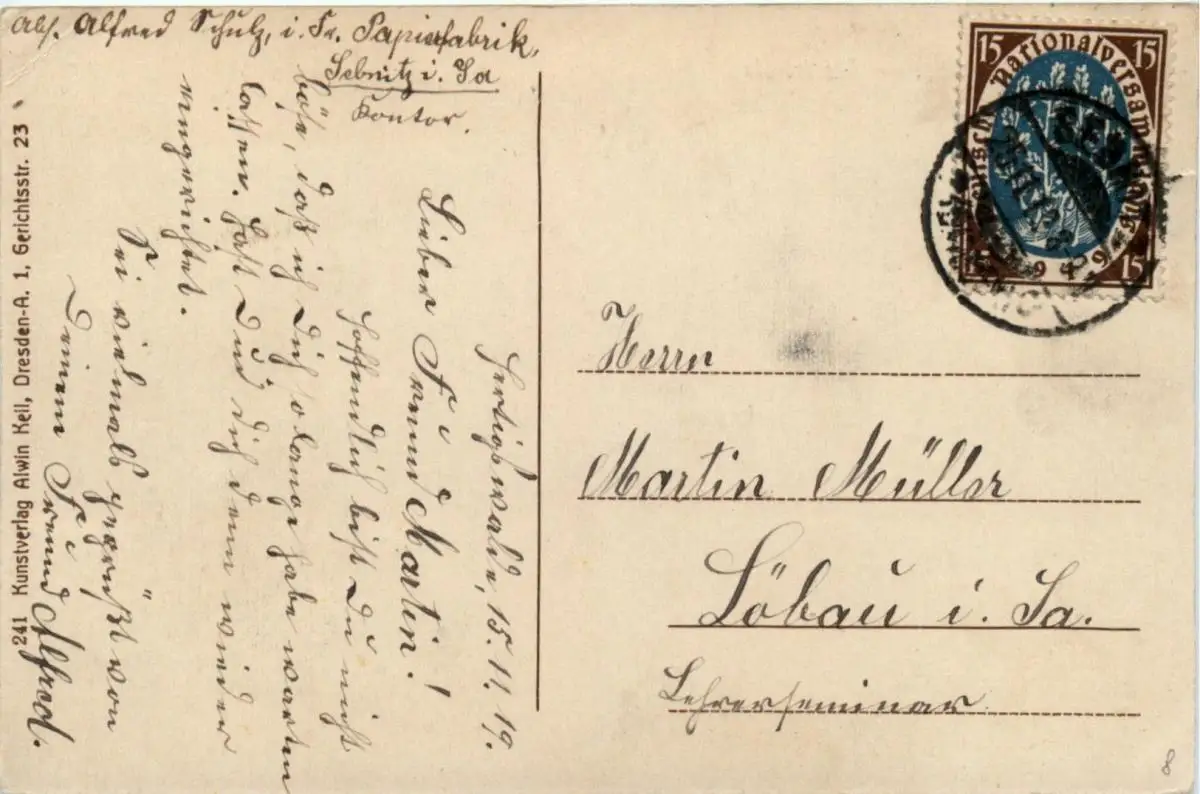 Abs. Alfred Schulz, i. Fa. Papierfabrik,
Sebnitz i. Sa
Kontor.
Hertigswalde, 15.11.19.
Lieber Freund Martin!
Hoffendlich bist Du nicht
böse, daß ich Dich solange habe warten
lassen. Hast Du dich denn wieder
eingerichtet.
Sei vielmals gegrüßt von
Deinem Freund Alfred.
241 Kunstverlag Alwin Keil, Dresden-A. 1, Gerichtsstr. 23
15 15
Deutsche Nationalversammlung
1919
15 15
Herrn
Martin Müller
Löbau i. Sa.
Lehrerseminar
8